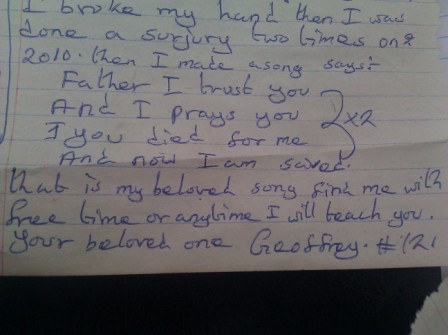 I broke my hand then I was
done a surjury two times on
2010. then I made a song says:-
Father I trust you
And I prays you
I you died for me
And now I am saved.
x2
that is my beloved song find me with
free time or anytime I will teach you.
Your beloved one Geoffrey. #121